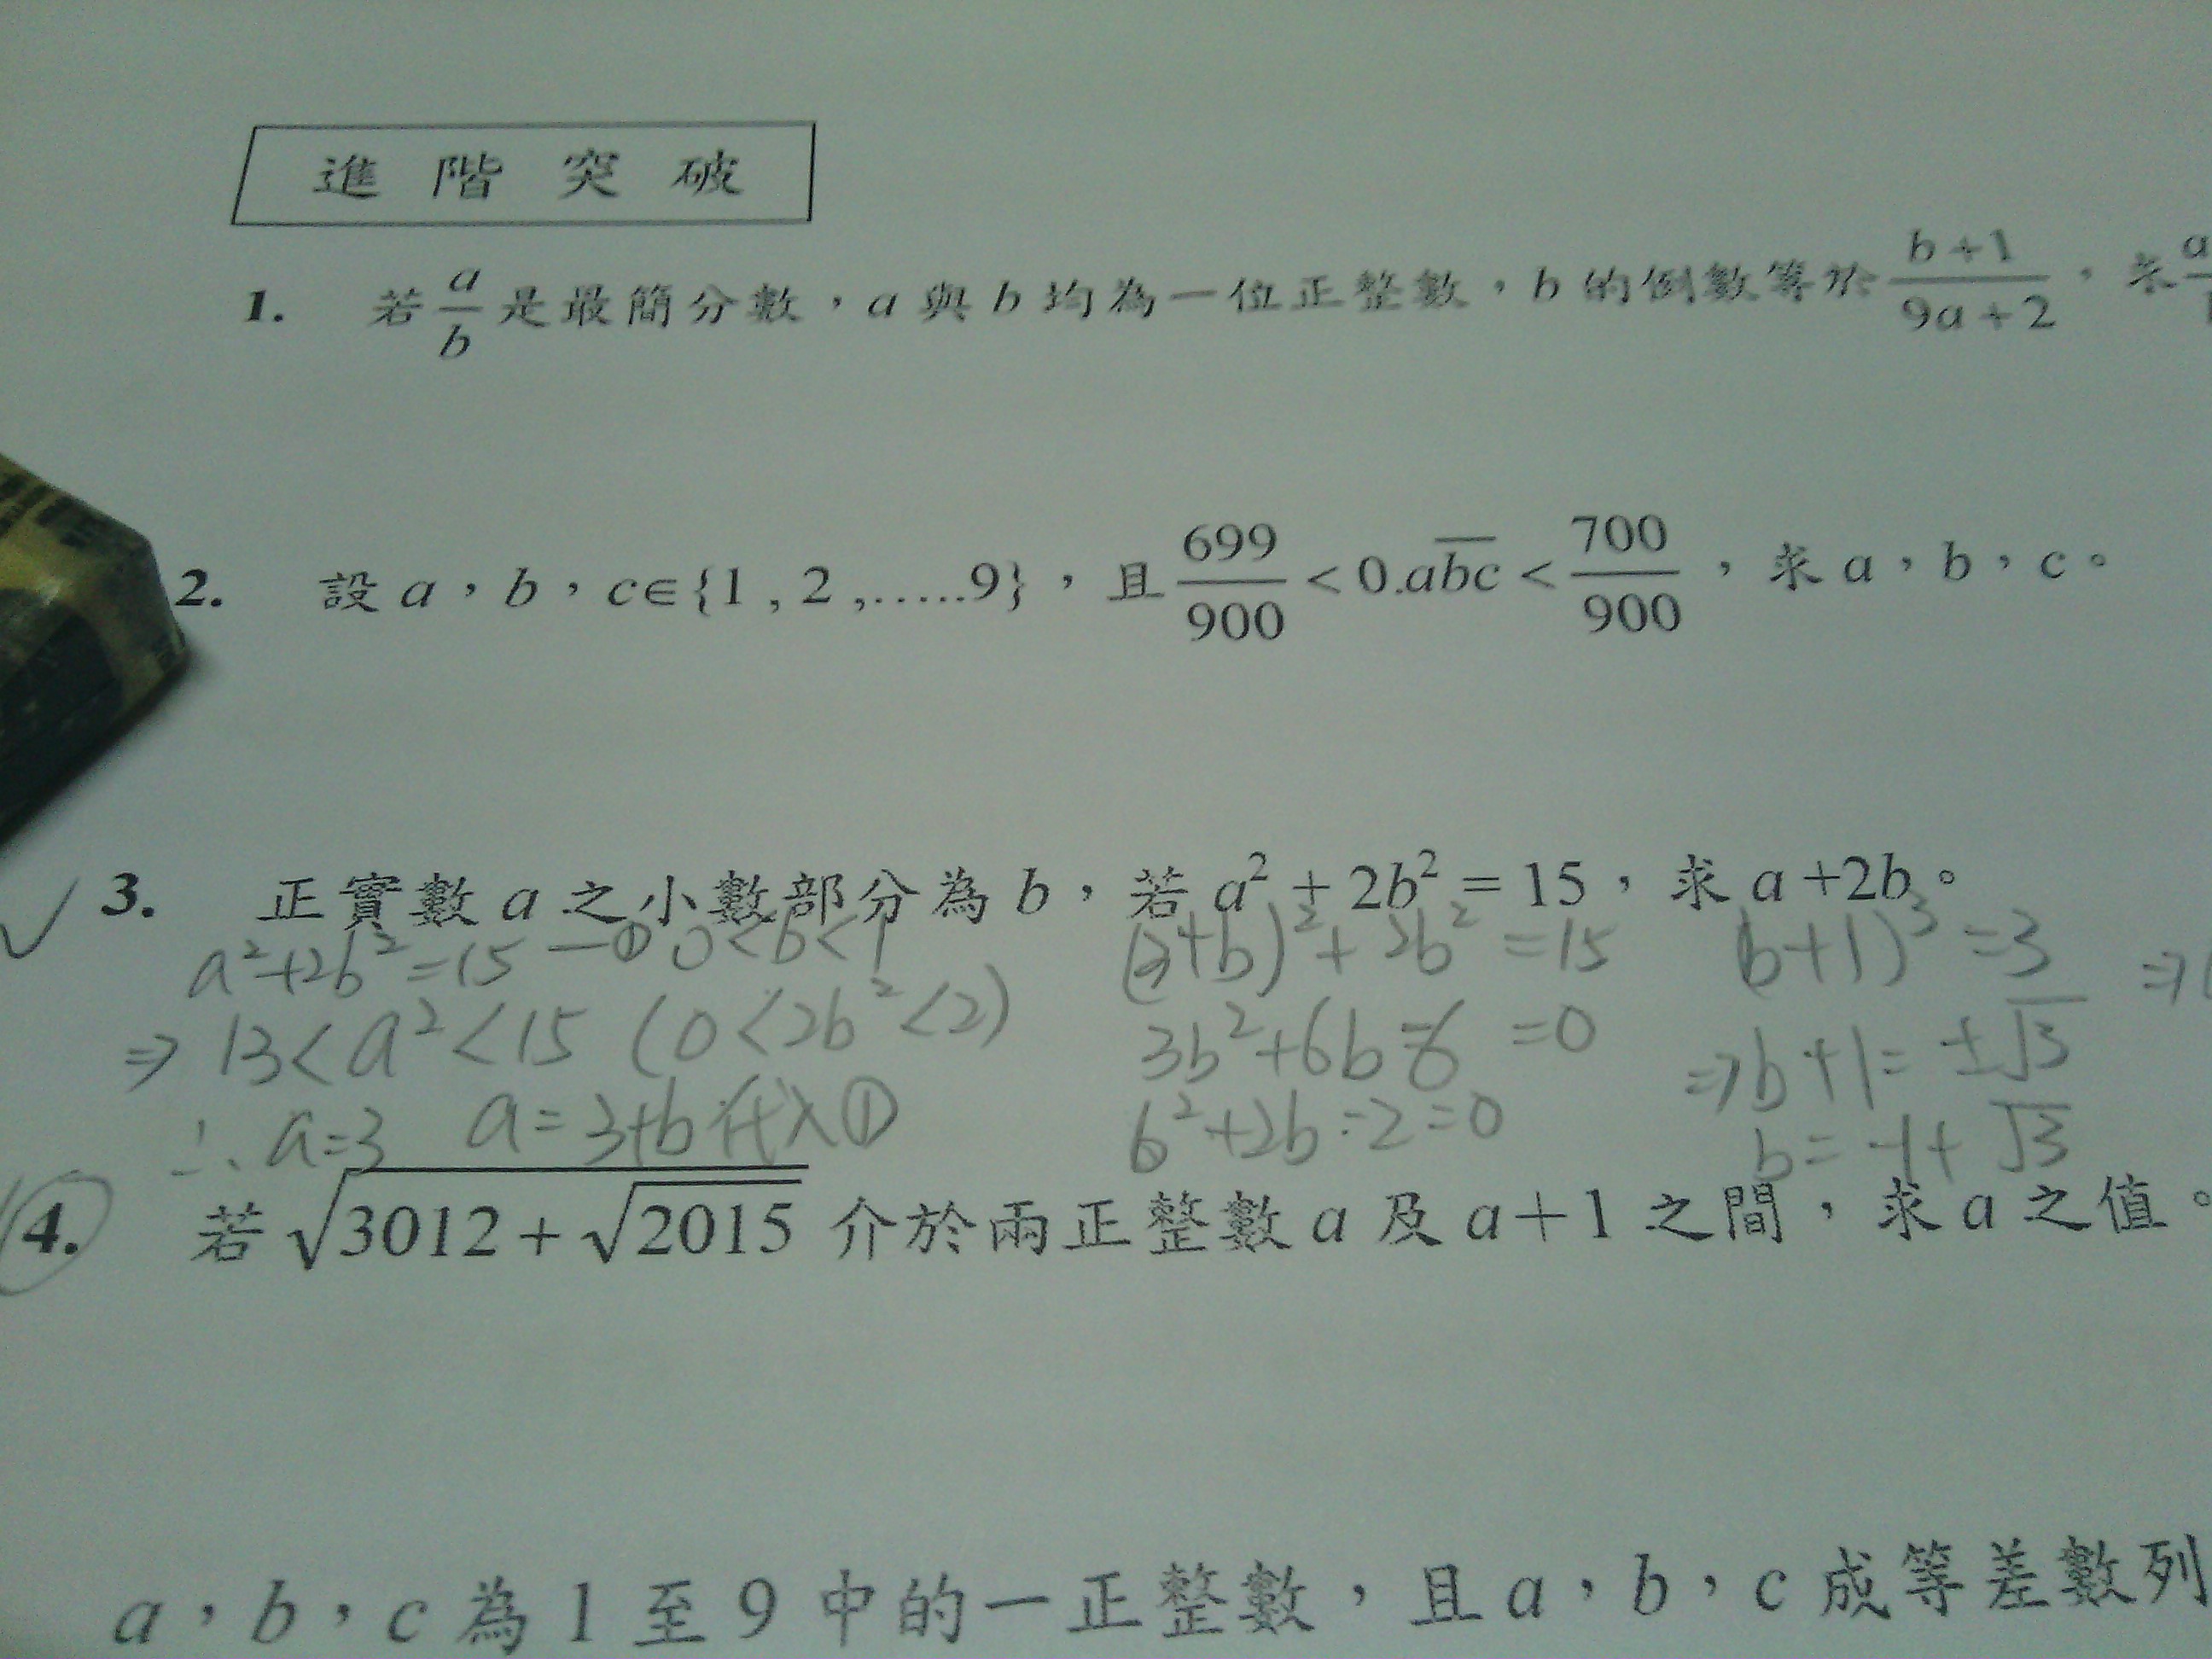 進階突破
1. 若 a/b 是最簡分數，a 與 b 均為一位正整數，b 的倒數等於 (b+1)/(9a+2)，求 a
2. 設 a，b，c∈{1 , 2 ,.....9}，且 699/900 < 0.a\overline{bc} < 700/900，求 a，b，c。
3. 正實數 a 之小數部分為 b，若 a² + 2b² = 15，求 a +2b。
a²+2b²=15 —① 0<b<1
(3+b)²+2b² =15
(b+1)³ =3 ⇒
⇒ 13<a²<15 (0<2b²<2)
3b²+6b-6 =0
⇒b+1= ±√3
∴ a=3 a=3+b 代入①
b²+2b-2=0
b= -1+√3
4. 若 √(3012+√2015) 介於兩正整數 a 及 a＋1 之間，求 a 之值。
a，b，c 為 1 至 9 中的一正整數，且 a，b，c 成等差數列